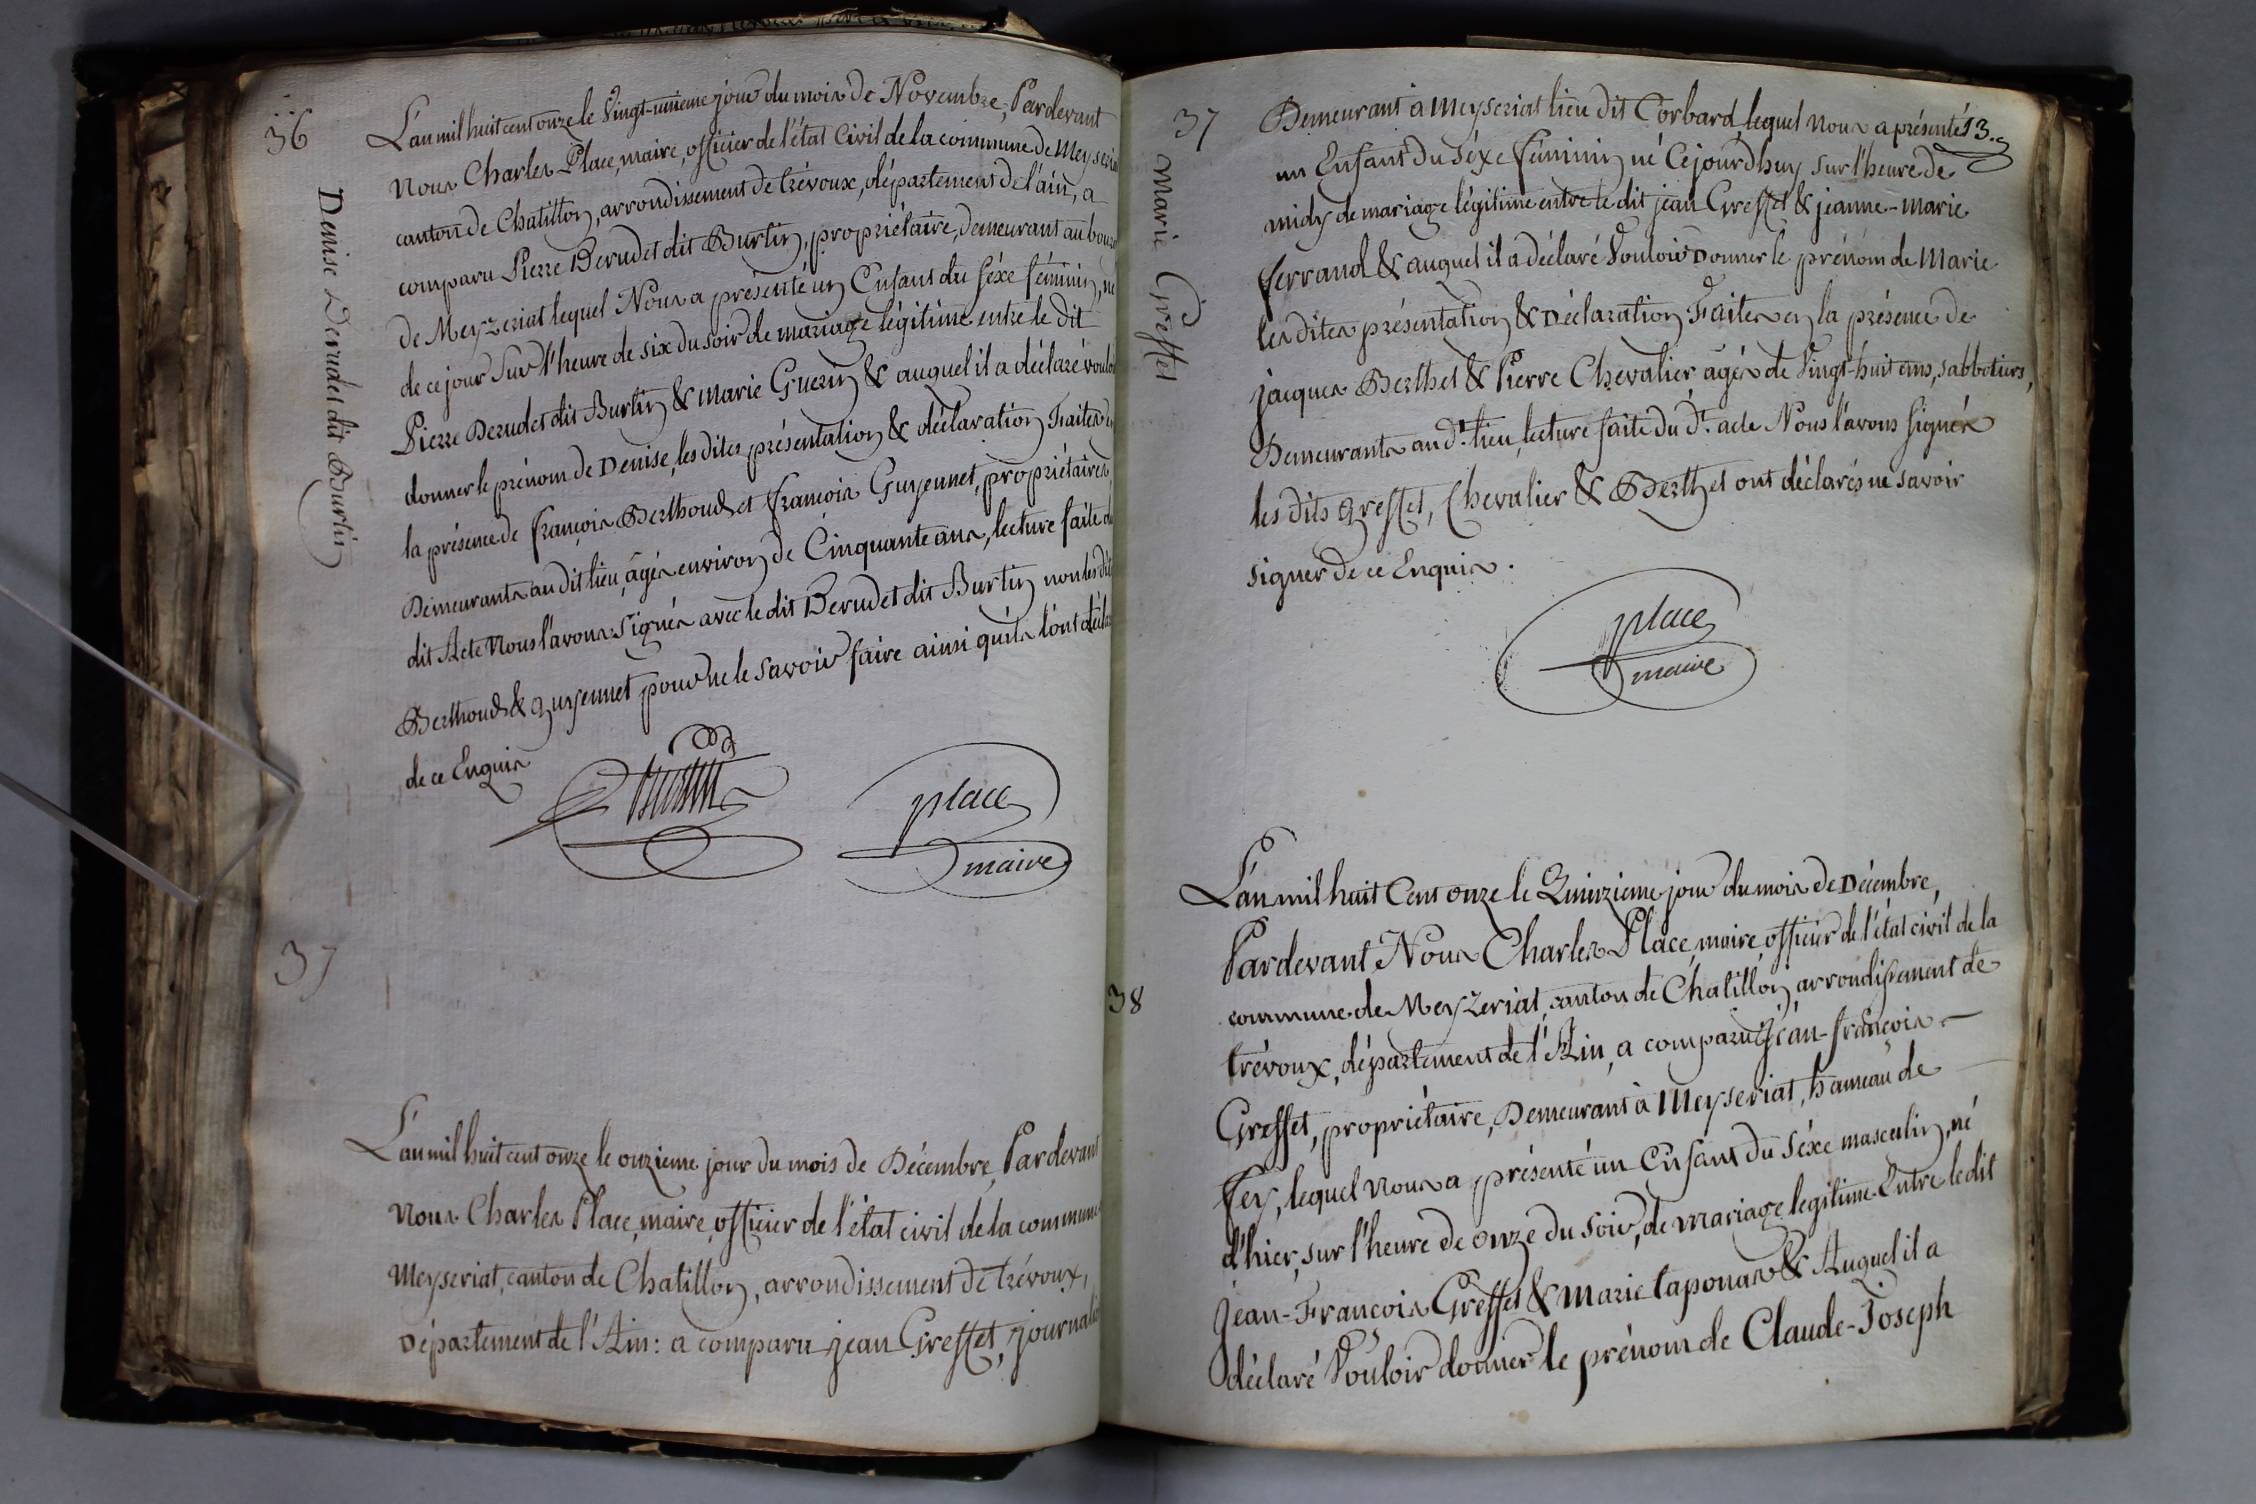 36
Denise Derudet dit Burtin
L'an mil huit cent onze le Vingt-unieme jour du mois de Novembre, Pardevant
Nous Charles Place, maire, officier de l'état Civil de la commune de Meyseria
canton de Chatillon, arrondissement de trévoux, département de l'ain, a
comparu Pierre Derudet dit Burtin, propriétaire, demeurant au bourg
de Meyzeriat lequel Nous a présenté un Enfant du séxe féminin, né
de ce jour Sur l'heure de six du soir de mariage légitime entre le dit
Pierre Derudet dit Burtin & Marie Guerin & auquel il a déclaré vouloi
donner le prénom de Denise, les dites présentation & déclaration Faites en
la présence de françois Berthoud et françois Guyennet, propriétaires
Demeurants au dit lieu, âgés environ de Cinquante ans, lecture faite du
dit Acte Nous l'avons Signés avec le dit Derudet dit Burtin non les dits
Berthoud & guyennet pour ne le savoir faire ainsi qu'ils l'ont décla
de ce Enquis
Burtin
place
maire
37
L'an mil huit cent onze le onzieme jour du mois de Décembre, Pardevant
Nous Charles Place, maire, officier de l'état civil de la commune
Meyseriat, canton de Chatillon, arrondissement de trévoux,
Département de l'Ain: a comparu jean Greffet, journali
37
Marie Greffet
13.
Demeurant à Meyseriat lieu dit Corbard, lequel nous a présenté
un Enfant du séxe féminin né Cejourdhuy sur l'heure de
midy de mariage légitime entre le dit jean Greffet & jeanne-marie
ferrand & auquel il a déclaré Vouloir Donner le prénom de Marie
les dites présentation & Déclaration Faites en la présence de
jacques Berthet & Pierre Chevalier âgés de Vingt-huit ans, sabbotiers,
Demeurants au dt. lieu, lecture faite du dt. acte Nous l'avons signés
les dits greffet, Chevalier & Berthet ont déclarés ne savoir
signer de ce Enquis.
place
maire
38
L'an mil huit Cent onze le Quinzieme jour du mois de Décembre,
Pardevant Nous Charles Place, maire, officier de l'état civil de la
commune de Meyzeriat, canton de Chatillon, arrondissement de
trévoux, département de l'Ain, a comparu jean-françois
Greffet, propriétaire, Demeurant à Meyseriat, hameau de
fey, lequel nous a présenté un Enfant du séxe masculin, né
d'hier, sur l'heure de onze du soir, de mariage legitime Entre le dit
Jean-Francois Greffet & Marie taponas & Auquel il a
déclaré Vouloir donner le prénom de Claude-Joseph